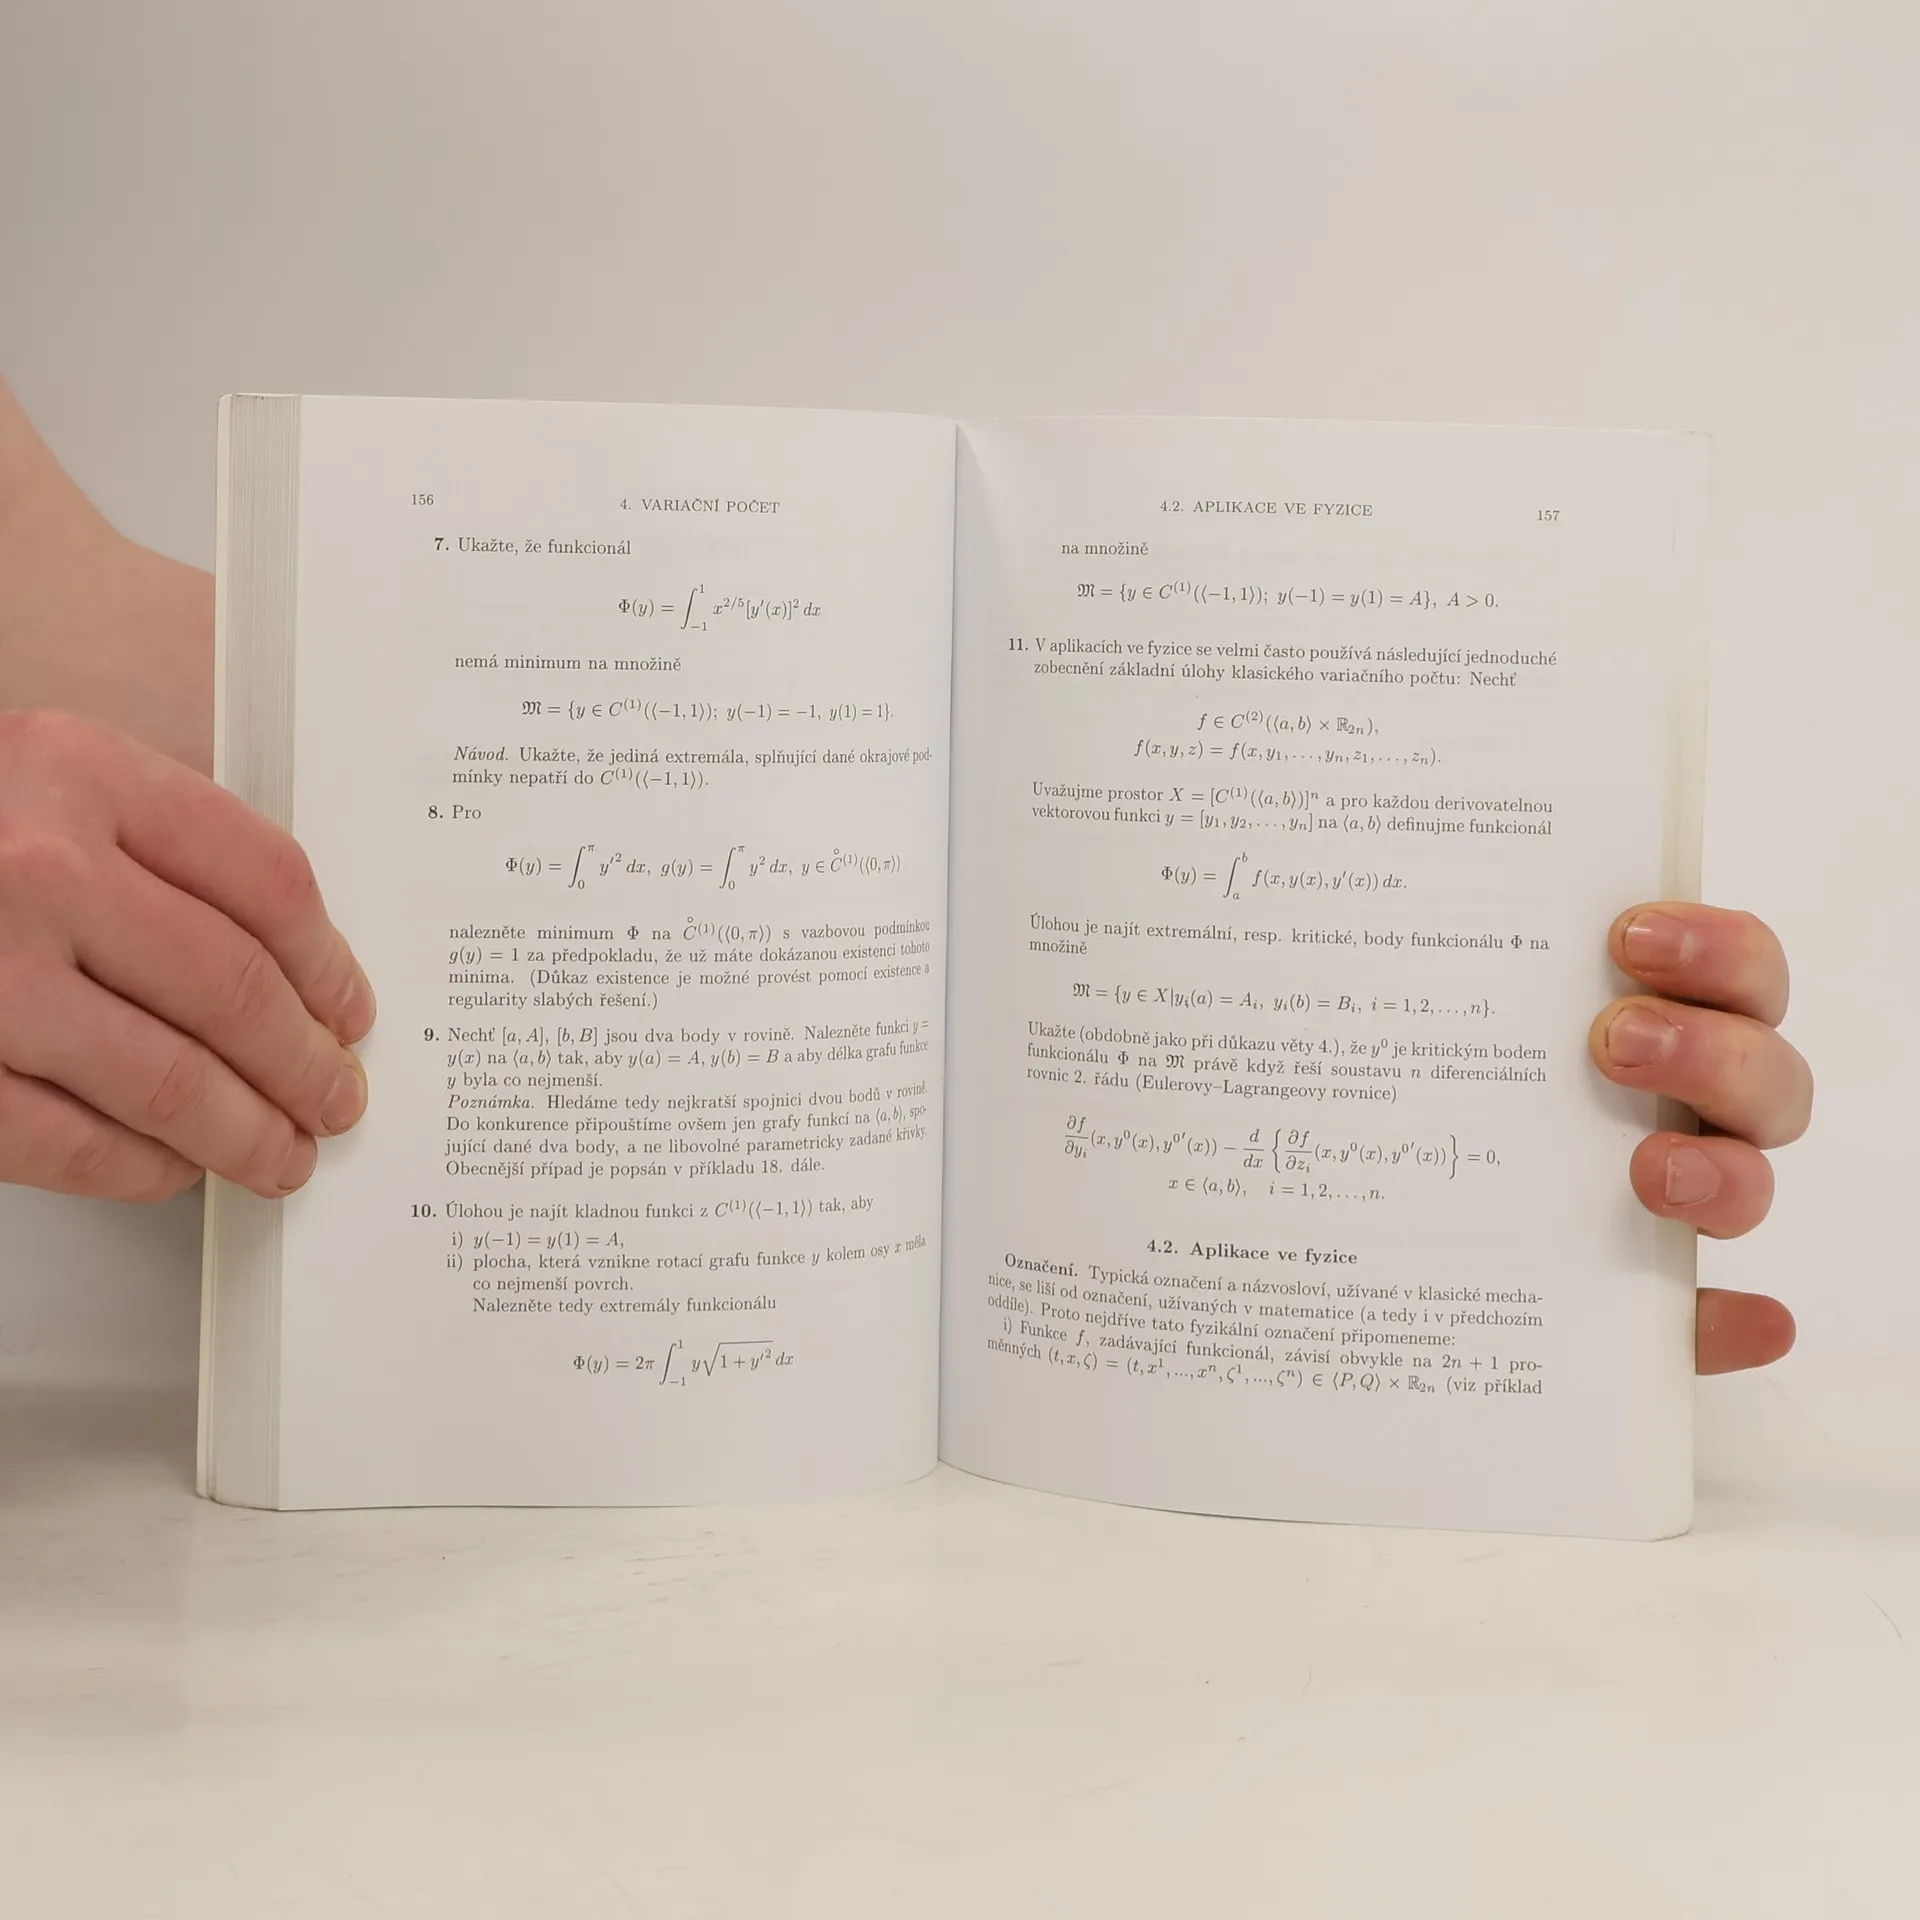 156
4. VARIAČNÍ POČET
7. Ukažte, že funkcionál
Φ(y) = ∫_{-1}^{1} x^{2/5}[y′(x)]² dx
nemá minimum na množině
𝔐 = {y ∈ C^{(1)}(⟨−1, 1⟩); y(−1) = −1, y(1) = 1}.
Návod. Ukažte, že jediná extremála, splňující dané okrajové pod-
mínky nepatří do C^{(1)}(⟨−1, 1⟩).
8. Pro
Φ(y) = ∫_0^π y′² dx, g(y) = ∫_0^π y² dx, y ∈ C̊^{(1)}(⟨0, π⟩)
nalezněte minimum Φ na C̊^{(1)}(⟨0, π⟩) s vazbovou podmínkou
g(y) = 1 za předpokladu, že už máte dokázanou existenci tohoto
minima. (Důkaz existence je možné provést pomocí existence a
regularity slabých řešení.)
9. Nechť [a, A], [b, B] jsou dva body v rovině. Nalezněte funkci y =
y(x) na ⟨a, b⟩ tak, aby y(a) = A, y(b) = B a aby délka grafu funkce
y byla co nejmenší.
Poznámka. Hledáme tedy nejkratší spojnici dvou bodů v rovině.
Do konkurence připouštíme ovšem jen grafy funkcí na ⟨a, b⟩, spo-
jující dané dva body, a ne libovolné parametricky zadané křivky.
Obecnější případ je popsán v příkladu 18. dále.
10. Úlohou je najít kladnou funkci z C^{(1)}(⟨−1, 1⟩) tak, aby
i) y(−1) = y(1) = A,
ii) plocha, která vznikne rotací grafu funkce y kolem osy x měla
co nejmenší povrch.
Nalezněte tedy extremály funkcionálu
Φ(y) = 2π ∫_{-1}^{1} y√(1 + y′²) dx
4.2. APLIKACE VE FYZICE
157
na množině
𝔐 = {y ∈ C^{(1)}(⟨−1, 1⟩); y(−1) = y(1) = A}, A > 0.
11. V aplikacích ve fyzice se velmi často používá následující jednoduché
zobecnění základní úlohy klasického variačního počtu: Nechť
f ∈ C^{(2)}(⟨a, b⟩ × ℝ_{2n}),
f(x, y, z) = f(x, y₁, . . . , yₙ, z₁, . . . , zₙ).
Uvažujme prostor X = [C^{(1)}(⟨a, b⟩)]ⁿ a pro každou derivovatelnou
vektorovou funkci y = [y₁, y₂, . . . , yₙ] na ⟨a, b⟩ definujme funkcionál
Φ(y) = ∫_a^b f(x, y(x), y′(x)) dx.
Úlohou je najít extremální, resp. kritické, body funkcionálu Φ na
množině
𝔐 = {y ∈ X|yᵢ(a) = Aᵢ, yᵢ(b) = Bᵢ, i = 1, 2, . . . , n}.
Ukažte (obdobně jako při důkazu věty 4.), že y⁰ je kritickým bodem
funkcionálu Φ na 𝔐 právě když řeší soustavu n diferenciálních
rovnic 2. řádu (Eulerovy–Lagrangeovy rovnice)
∂f/∂yᵢ (x, y⁰(x), y⁰′(x)) − d/dx {∂f/∂zᵢ (x, y⁰(x), y⁰′(x))} = 0,
x ∈ ⟨a, b⟩, i = 1, 2, . . . , n.
4.2. Aplikace ve fyzice
Označení. Typická označení a názvosloví, užívané v klasické mecha-
nice, se liší od označení, užívaných v matematice (a tedy i v předchozím
oddíle). Proto nejdříve tato fyzikální označení připomeneme:
i) Funkce f, zadávající funkcionál, závisí obvykle na 2n + 1 pro-
měnných (t, x, ζ) = (t, x¹, ..., xⁿ, ζ¹, ..., ζⁿ) ∈ ⟨P, Q⟩ × ℝ_{2n} (viz příklad